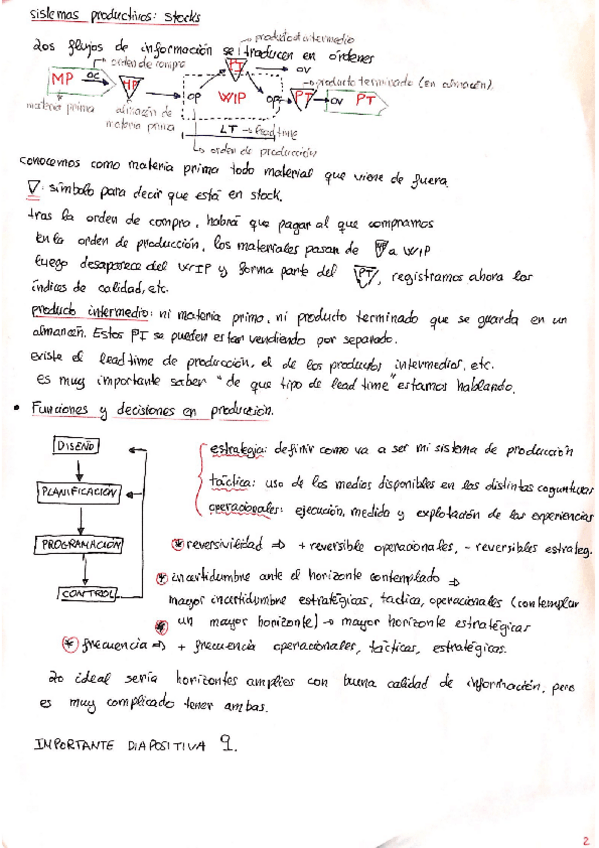 sistemas productivos: stocks
Los flujos de información se traducen en órdenes
→ producto intermedio
→ orden de compra
PI
OV
→ producto terminado (en almacén)
MP
OC
MP
OP
WIP
OP
PT
OV
PT
materia prima
almacén de
materia prima
LT → lead time
↳ orden de producción
conocemos como materia prima todo material que viene de fuera.
▽: símbolo para decir que está en stock.
tras la orden de compra, habrá que pagar al que compramos
En la orden de producción, los materiales pasan de MP a WIP
luego desaparece del WIP y forma parte del PT, registramos ahora los
índices de calidad, etc.
producto intermedio: ni materia prima, ni producto terminado que se guarda en un
almacén. Estos PI se pueden estar vendiendo por separado.
existe el lead time de producción, el de los productos intermedios, etc.
es muy importante saber "de que tipo de lead time" estamos hablando.
• Funciones y decisiones en producción.
DISEÑO
PLANIFICACIÓN
PROGRAMACIÓN
CONTROL
estrategia: definir como va a ser mi sistema de producción
táctica: uso de los medios disponibles en las distintas coyunturas
operacionales: ejecución, medida y explotación de las experiencias
* reversivilidad ⇒ + reversible operacionales, - reversibles estrateg.
* incertidumbre ante el horizonte contemplado ⇒
mayor incertidumbre estratégicas, tactica, operacionales (contemplar
* un mayor horizonte) → mayor horizonte estratégicas
* frecuencia ⇒ + frecuencia operacionales, tácticas, estratégicas.
Lo ideal sería horizontes amplios con buena calidad de información, pero
es muy complicado tener ambas.
IMPORTANTE DIAPOSITIVA 9.
2